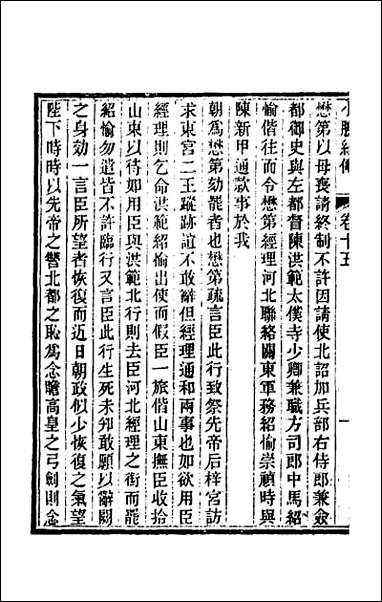 小腆紀傳　卷十五　一
懋第以母喪請終制不許因請使北詔加兵部右侍郎兼僉
都御史與左都督陳洪範太僕寺少卿兼職方司郎中馬紹
愉偕往而令懋第經理河北聯絡關東軍務紹愉崇禎時與
陳新甲通款事於我
朝爲懋第劾罷者也懋第疏言臣此行致祭先帝后梓宮訪
求東宮二王蹤跡誼不敢辭但經理通和兩事也如欲用臣
經理則乞命洪範紹愉出使而假臣一旅偕山東撫臣收拾
山東以待如用臣與洪範北行則去臣河北經理之銜而罷
紹愉勿遣皆不許臨行又言臣此行生死未卹敢願以辭闕
之身効一言臣所望者恢復而近日朝政似少恢復之氣望
陛下時時以先帝之讐北都之恥爲念瞻高皇之弓劍則念